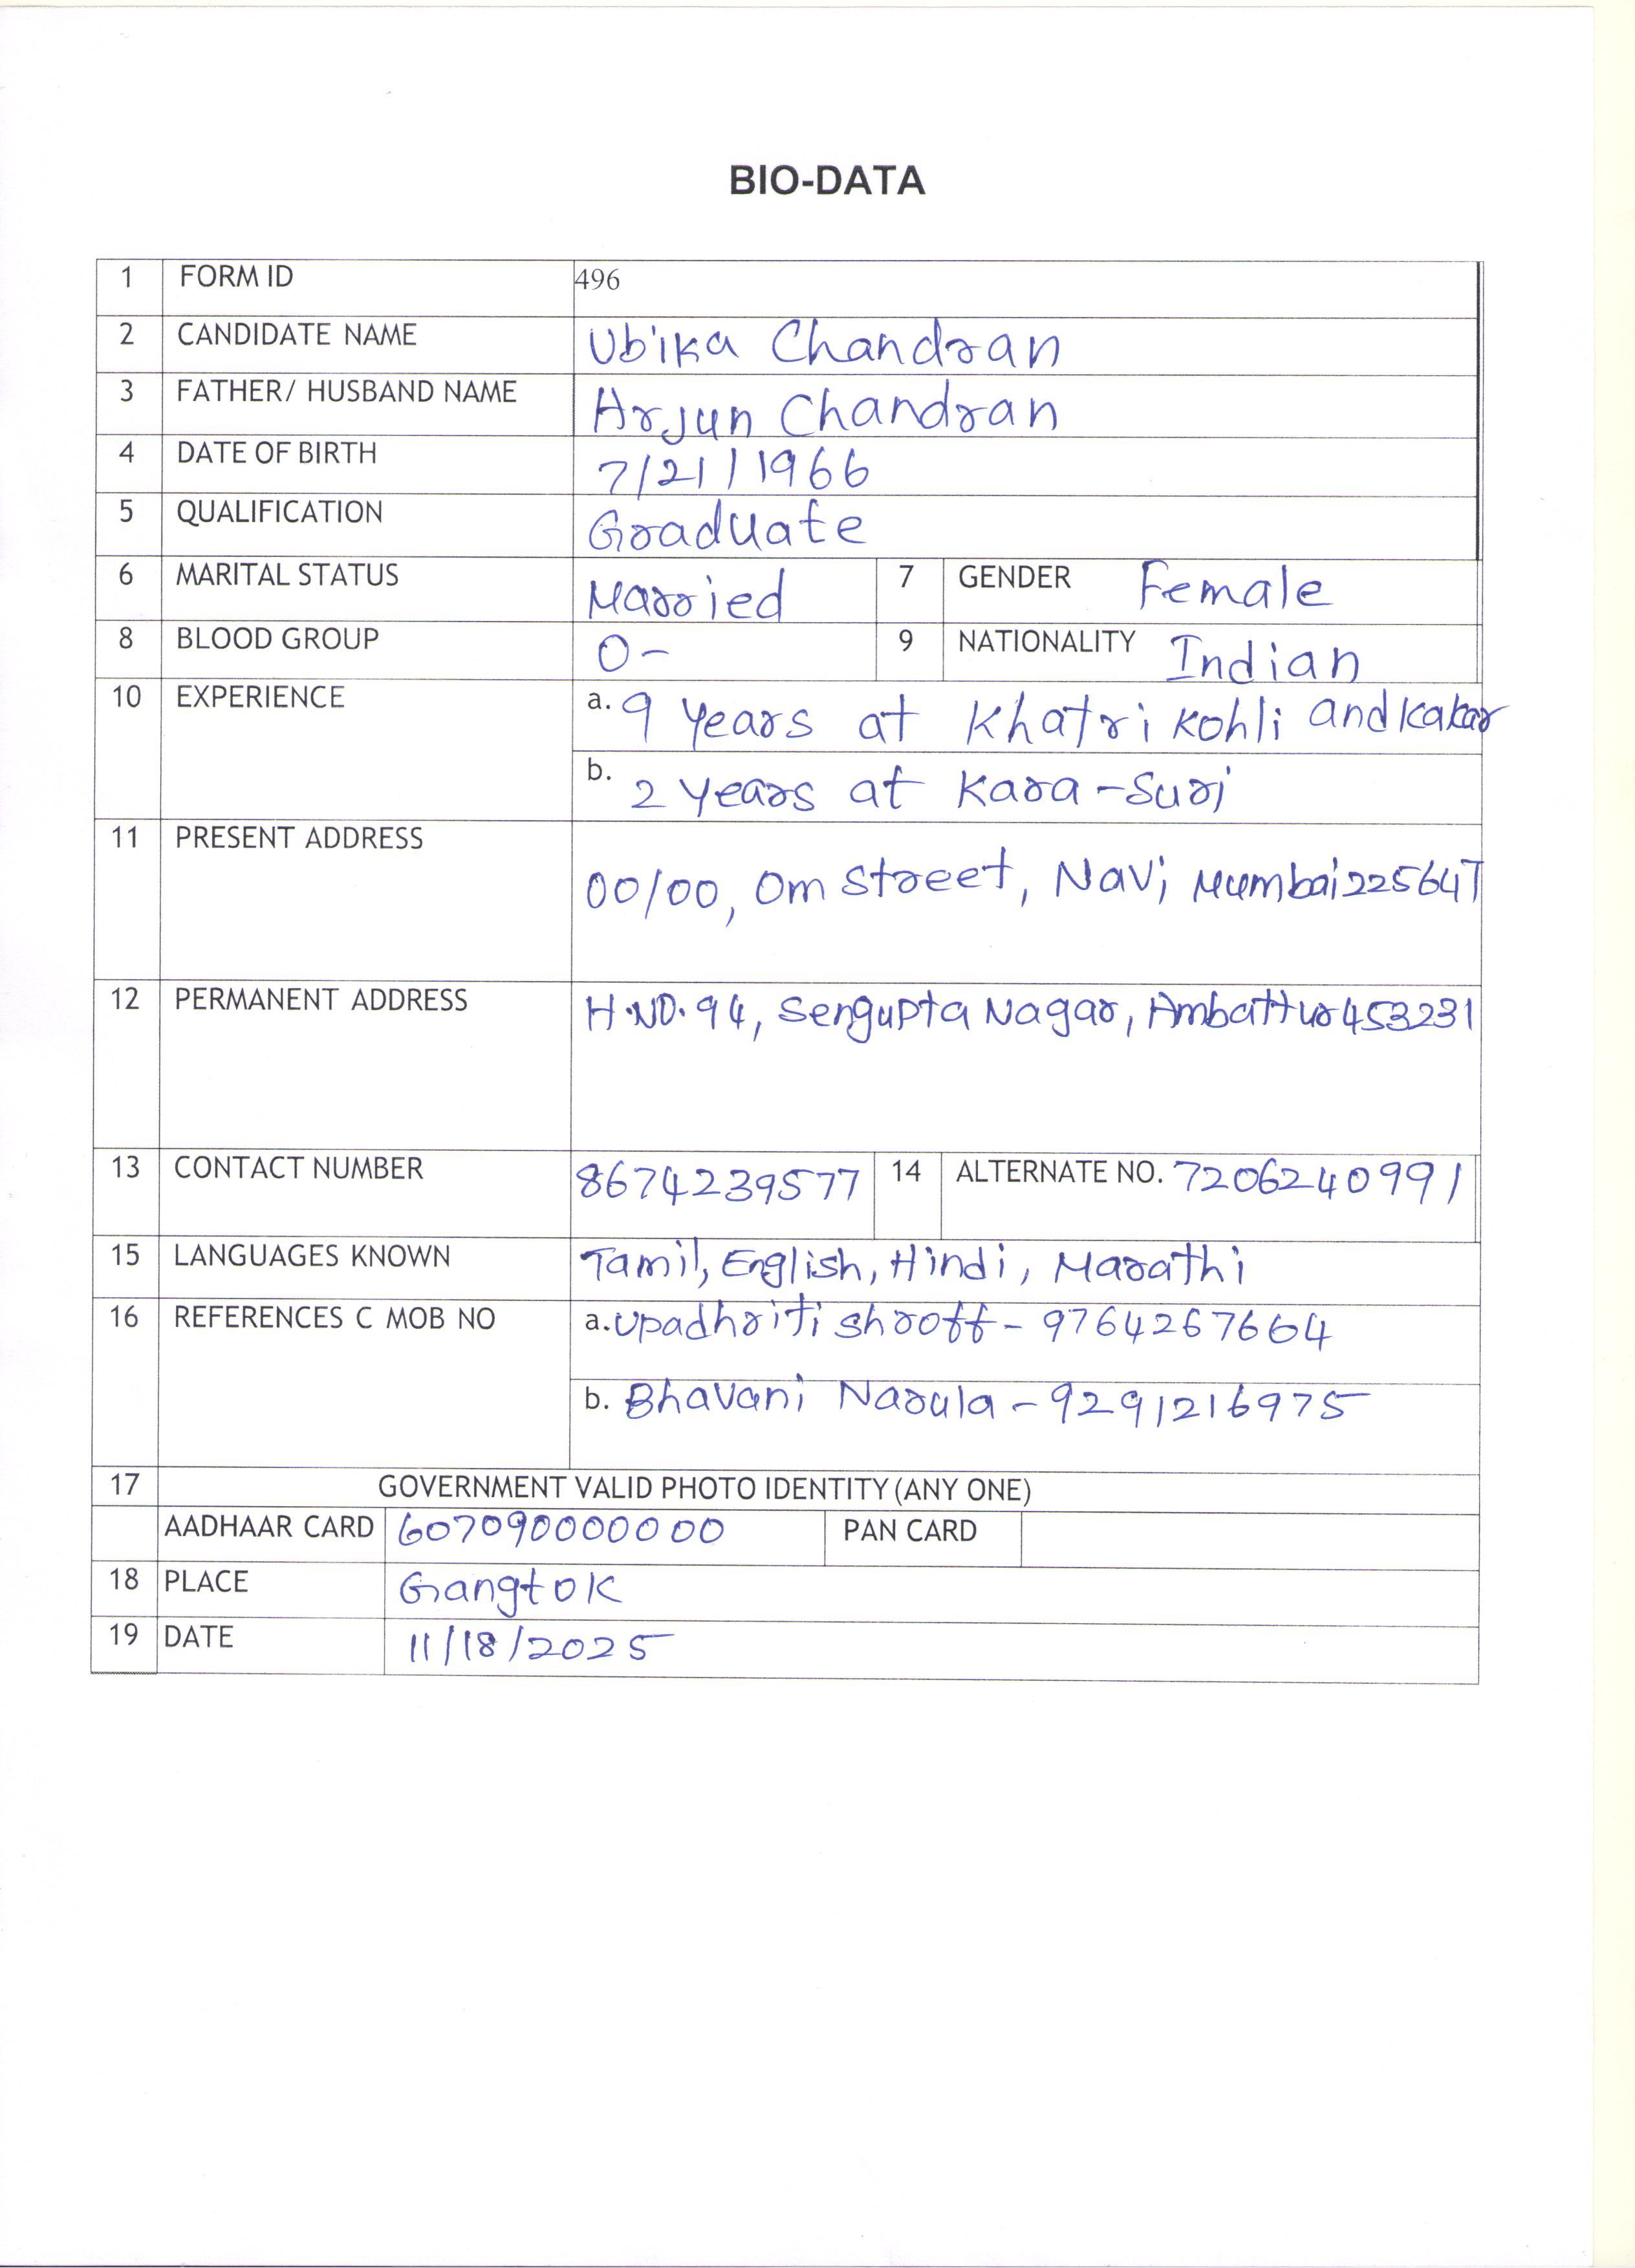 BIO-DATA
1 FORM ID 496
2 CANDIDATE NAME Ubika Chandran
3 FATHER/ HUSBAND NAME Arjun Chandran
4 DATE OF BIRTH 7/21/1966
5 QUALIFICATION Graduate
6 MARITAL STATUS Married 7 GENDER Female
8 BLOOD GROUP O- 9 NATIONALITY Indian
10 EXPERIENCE a. 9 Years at Khatri Kohli and Kakar
b. 2 Years at Kara-Suri
11 PRESENT ADDRESS 00/00, Om Street, Navi Mumbai 225647
12 PERMANENT ADDRESS H.NO. 94, Sengupta Nagar, Ambattur 453231
13 CONTACT NUMBER 8674239577 14 ALTERNATE NO. 7206240991
15 LANGUAGES KNOWN Tamil, English, Hindi, Marathi
16 REFERENCES C MOB NO a. Upadhriti Shroff - 9764267664
b. Bhavani Narula - 9291216975
17 GOVERNMENT VALID PHOTO IDENTITY (ANY ONE)
AADHAAR CARD 607090000000 PAN CARD
18 PLACE Gangtok
19 DATE 11/18/2025